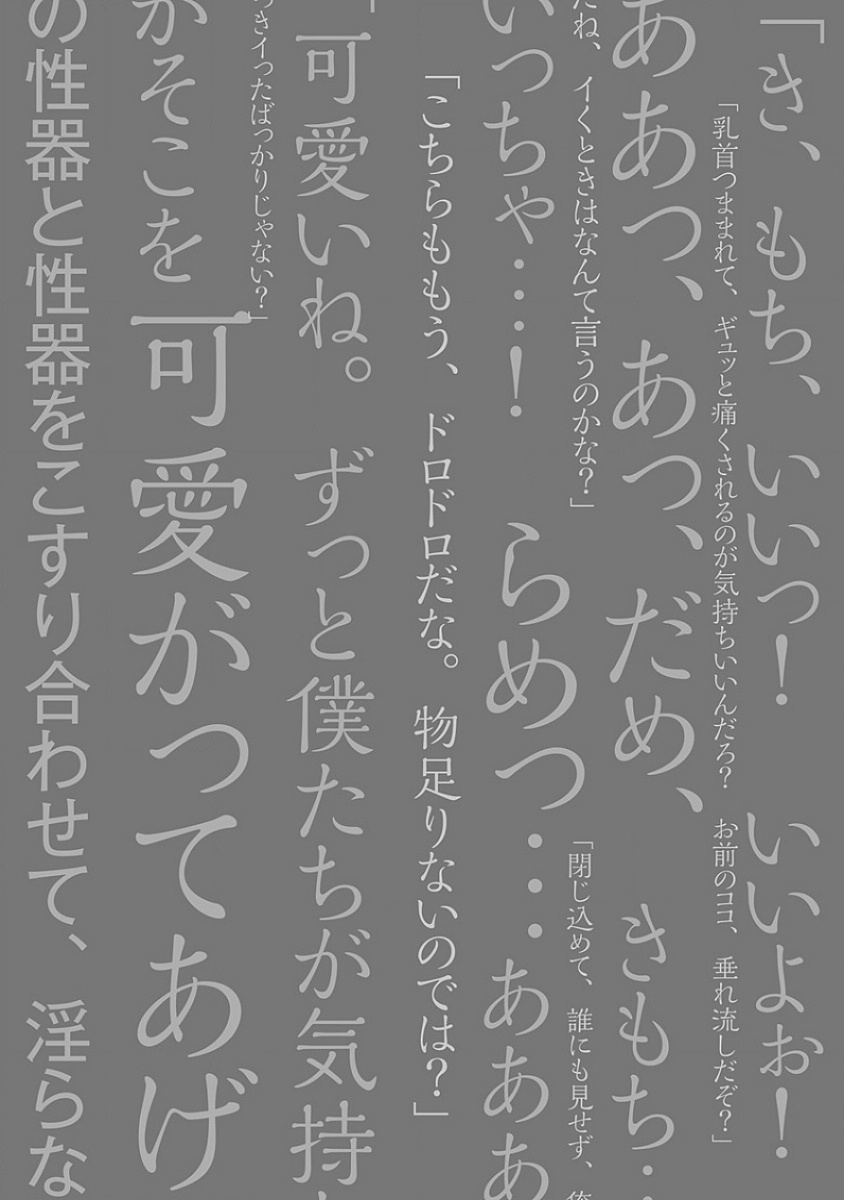 「き、もち、いいっ！　いいよぉ！
「乳首つままれて、ギュッと痛くされるのが気持ちいいんだろ？　お前のココ、垂れ流しだぞ？」
ああっ、あっ、だめ、　きもち…
だね、イくときはなんて言うのかな？」
「閉じ込めて、誰にも見せず、
いっちゃ……！　らめっ…あああ
「こちらももう、ドロドロだな。物足りないのでは？」
「可愛いね。ずっと僕たちが気持
っきイったばっかりじゃない？」
がそこを可愛がってあげ
の性器と性器をこすり合わせて、淫らな